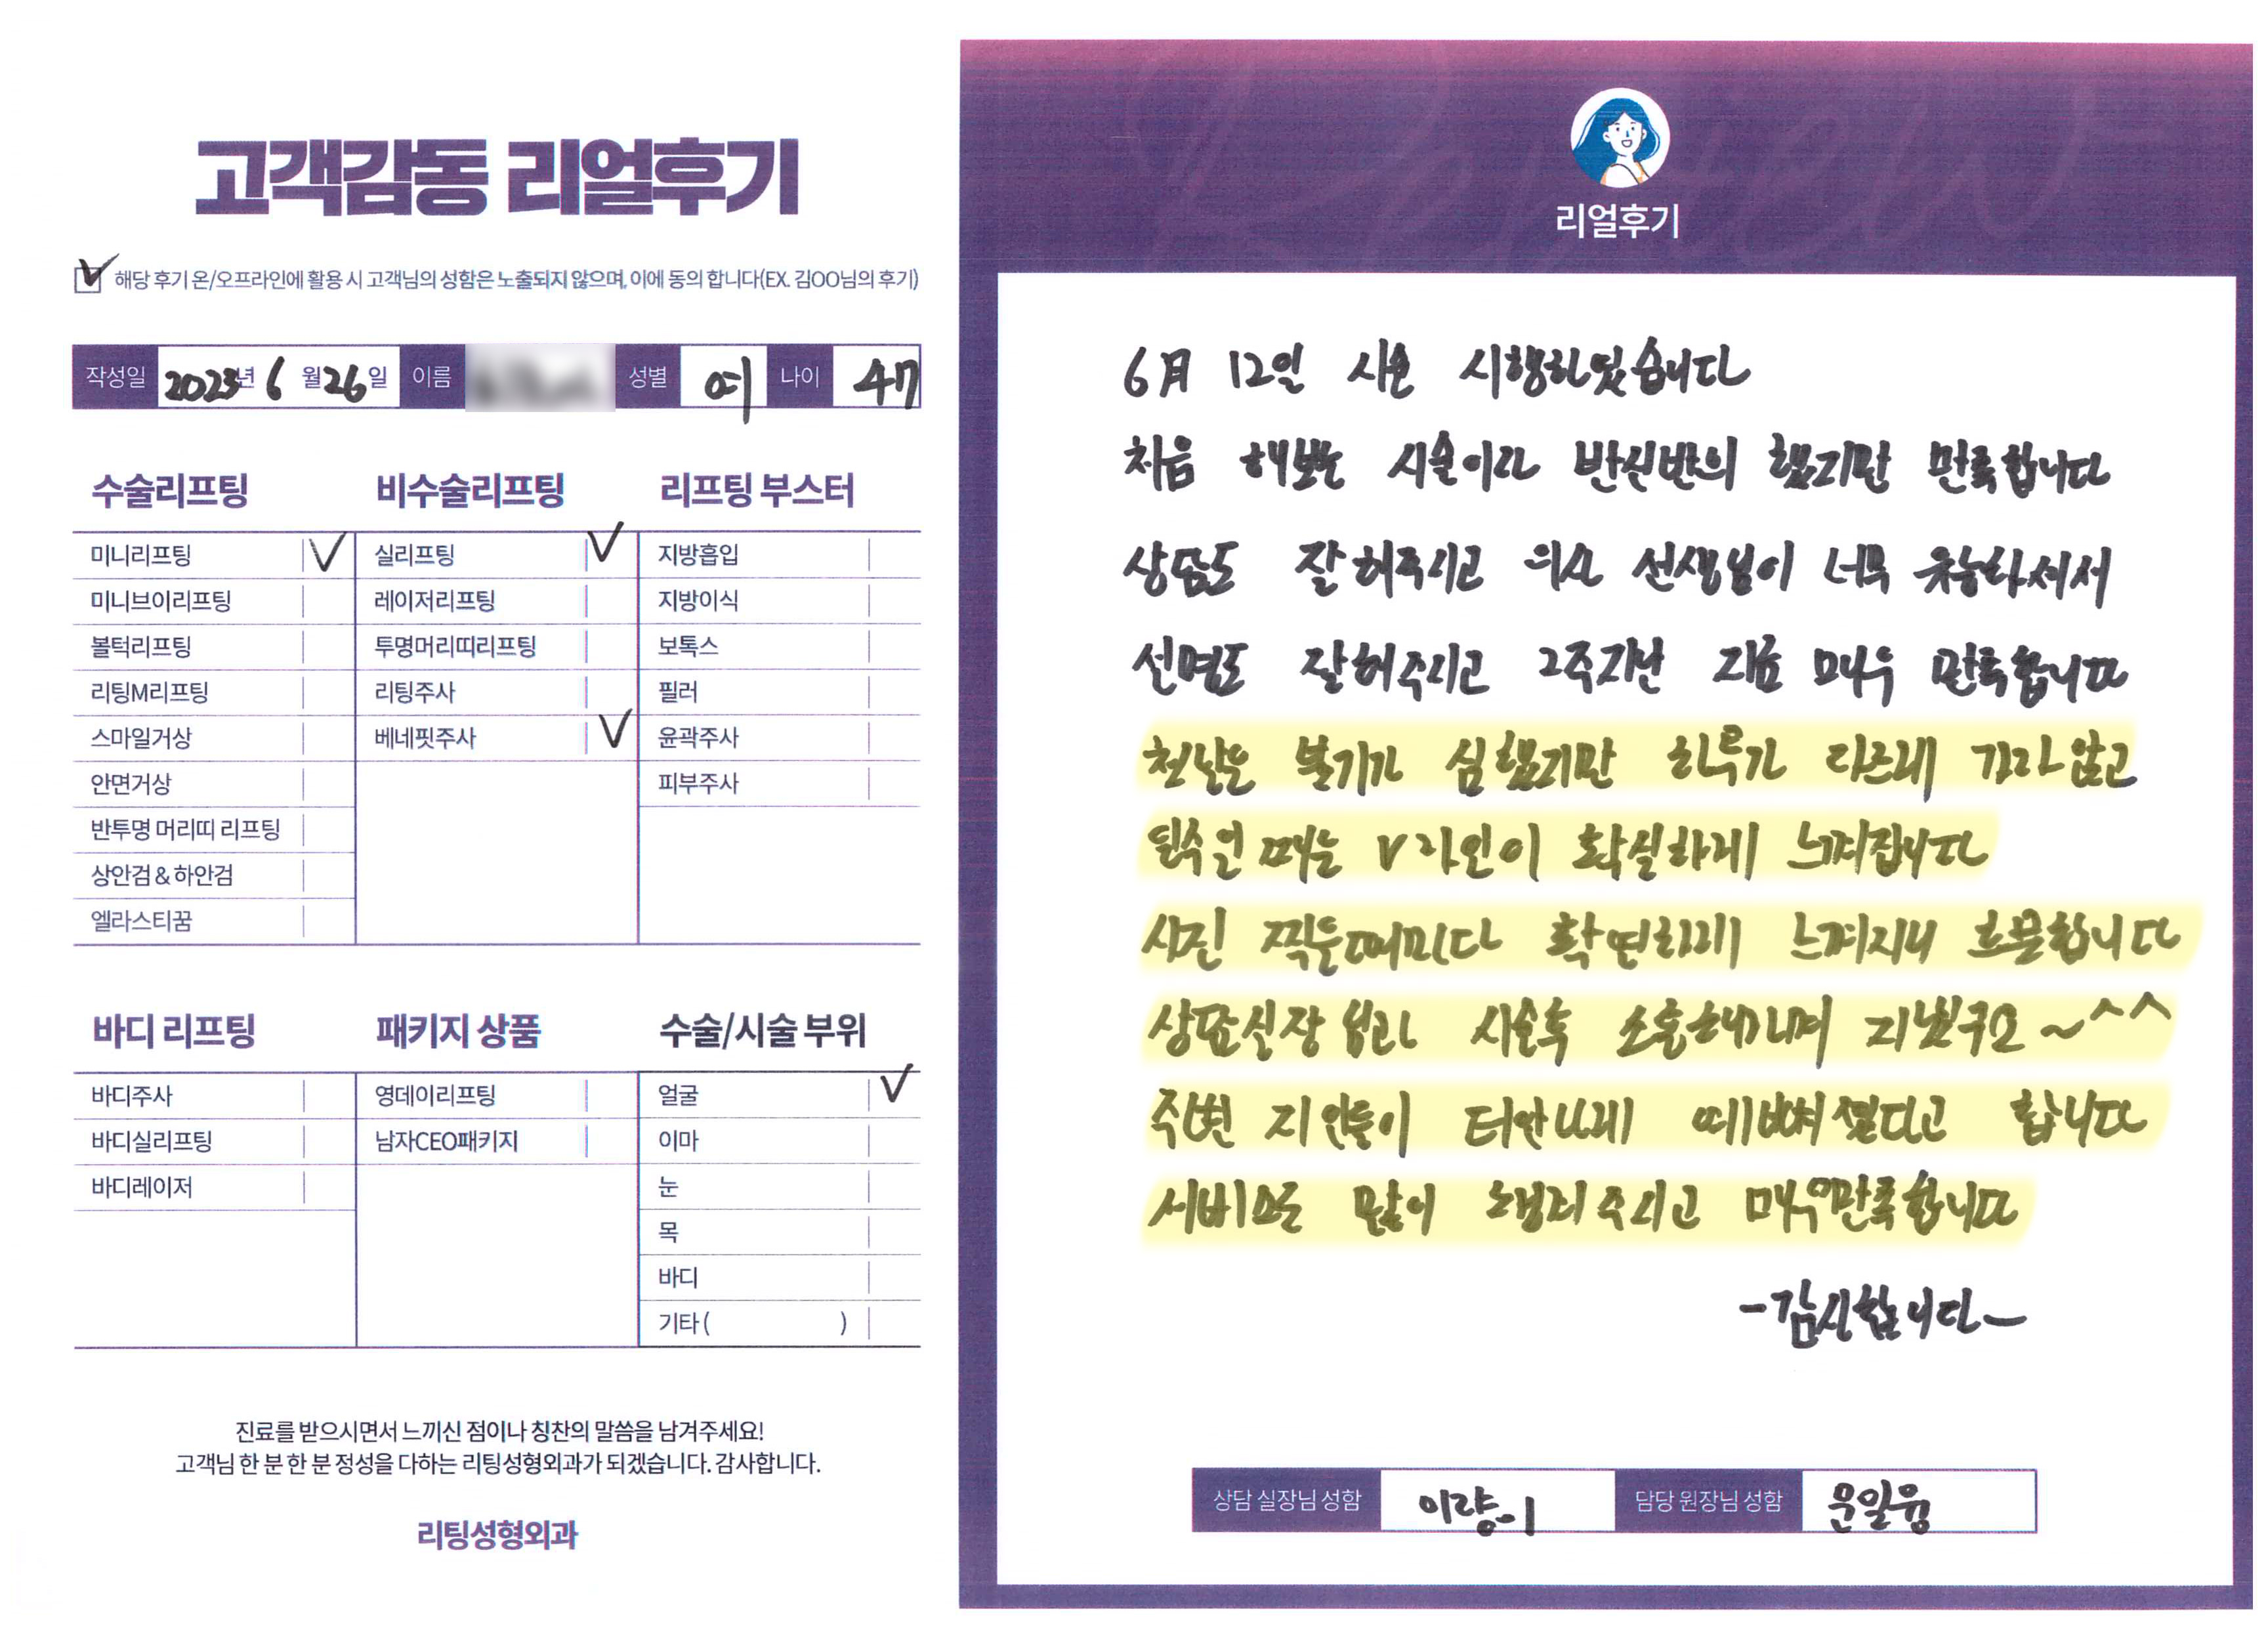 고객감동 리얼후기
해당 후기 온/오프라인에 활용 시 고객님의 성함은 노출되지 않으며, 이에 동의 합니다(EX. 김OO님의 후기)
작성일 2023년 6월 26일 이름 성별 여 나이 47
수술리프팅
미니리프팅
미니브이리프팅
볼턱리프팅
리팅M리프팅
스마일거상
안면거상
반투명 머리띠 리프팅
상안검 & 하안검
엘라스티꿈
비수술리프팅
실리프팅
레이저리프팅
투명머리띠리프팅
리팅주사
베네핏주사
리프팅 부스터
지방흡입
지방이식
보톡스
필러
윤곽주사
피부주사
바디 리프팅
바디주사
바디실리프팅
바디레이저
패키지 상품
영데이리프팅
남자CEO패키지
수술/시술 부위
얼굴
이마
눈
목
바디
기타 ( )
진료를 받으시면서 느끼신 점이나 칭찬의 말씀을 남겨주세요!
고객님 한 분 한 분 정성을 다하는 리팅성형외과가 되겠습니다. 감사합니다.
리팅성형외과
리얼후기
6月 12일 시술 시행하였습니다
처음 해보는 시술이라 반신반의 했지만 만족합니다
상담도 잘해주시고 의사 선생님이 너무 유능하셔서
설명도 잘해주시고 2주지난 지금 매우 만족합니다
첫날은 붓기가 심했지만 하루가 다르게 가라 앉고
V라인이 확실하게 느껴집니다
사진 찍을때마다 확연하게 느껴지니 흐뭇합니다
상담실장님과 시술후 소통해가며 지냈구요~^^
주변 지인들이 티안나게 예뻐졌다고 합니다
서비스도 많이 챙겨주시고 매우만족합니다
-감사합니다-
상담 실장님 성함 담당 원장님 성함